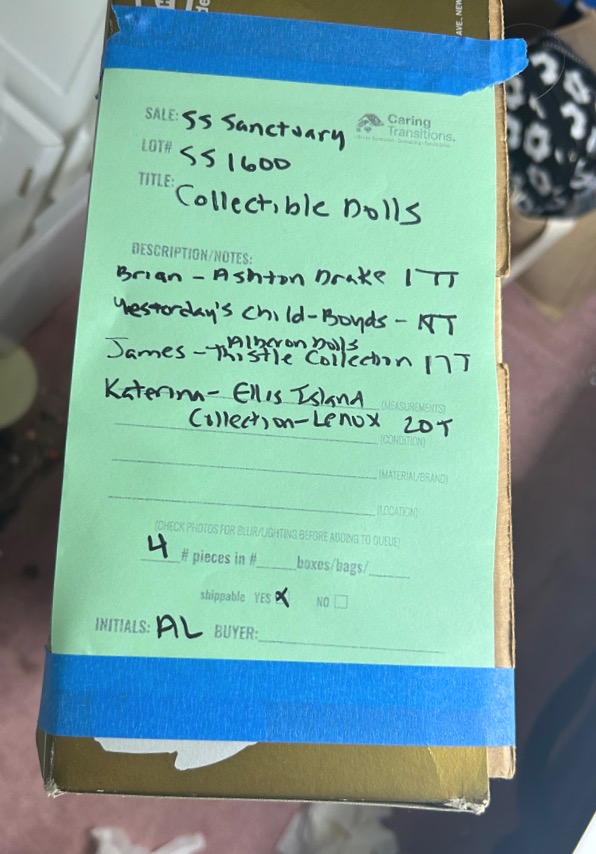 SALE: SS Sanctuary
Caring Transitions.
LOT# SS 1600
TITLE: Collectible Dolls
DESCRIPTION/NOTES:
Brian - Ashton Drake 17T
Yesterday's Child - Boyds -
Alberon Dolls
James - Thistle Collection 17T
Katerina - Ellis Island
(MEASUREMENTS)
Collection - Lenox 20T
(CONDITION)
(MATERIAL/BRAND)
(LOCATION)
(CHECK PHOTOS FOR BLUR/LIGHTING BEFORE ADDING TO QUEUE)
4 # pieces in # boxes/bags/
shippable YES X NO
INITIALS: AL BUYER:
AVE, NEW